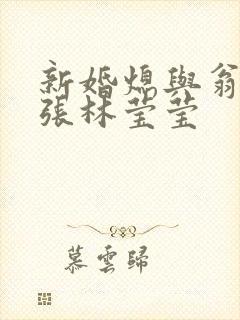 新婚熄與翁
張林莹莹
慕雲歸